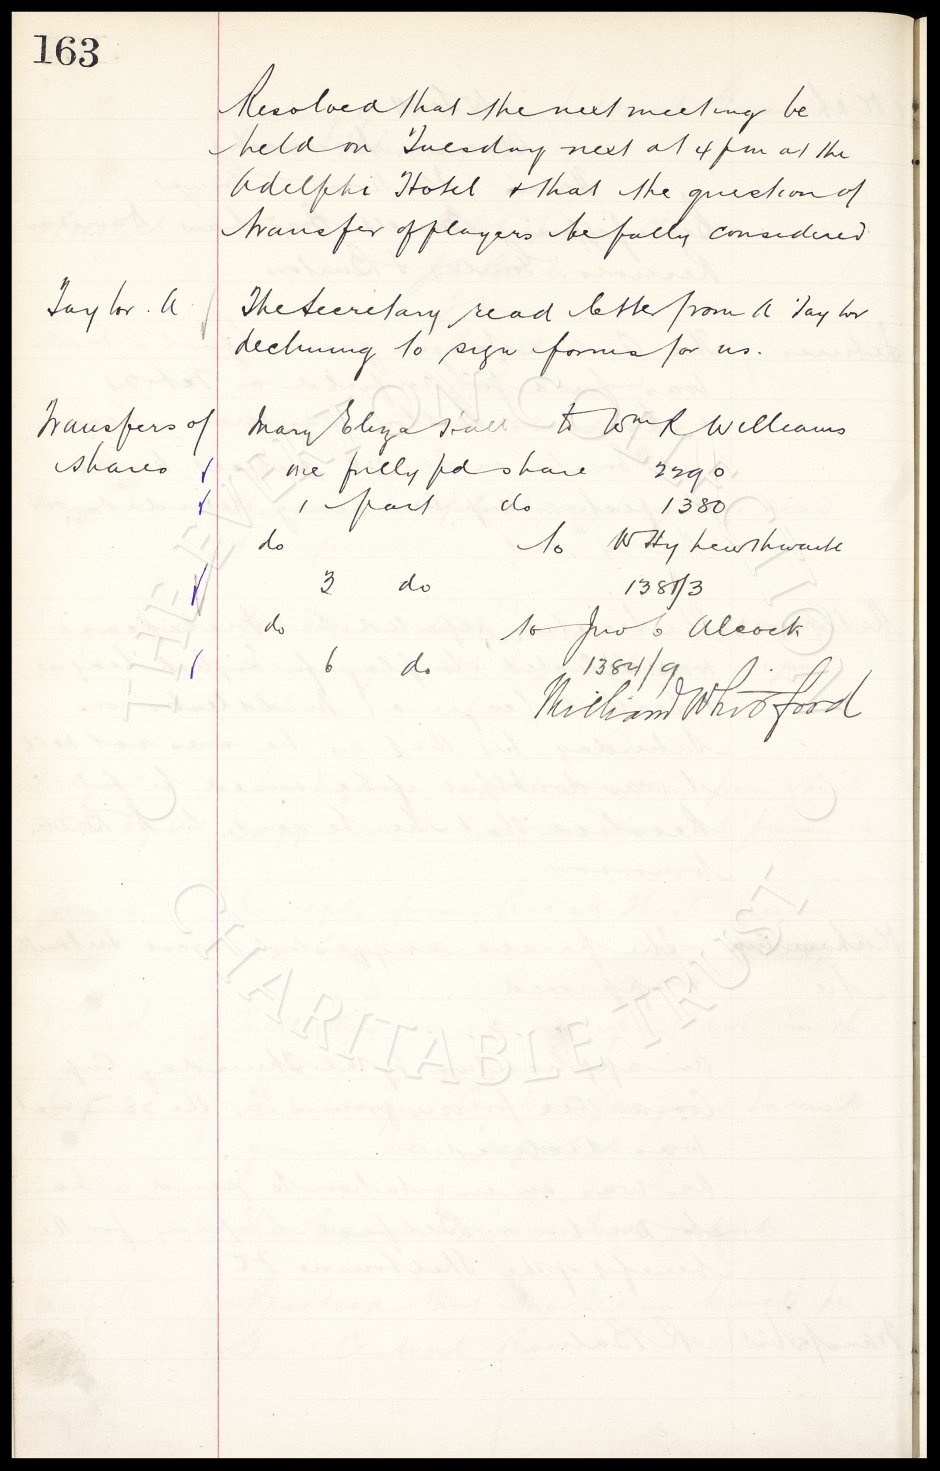 163
Resolved that the next meeting be
held on Tuesday next at 4 pm at the
Adelphi Hotel & that the question of
transfer of players be fully considered
Taylor. A
The Secretary read letter from A Taylor
declining to sign forms for us.
Transfers of
shares
Mary Eliza to Wm R Williams
one fully pd share 2290
1 part do 1380
do to W Hy Lewthwaite
3 do 1381/3
do to Jno Alcock
6 do 1384/9
William Whitford
THE EVERTON COLLECTION
CHARITABLE TRUST